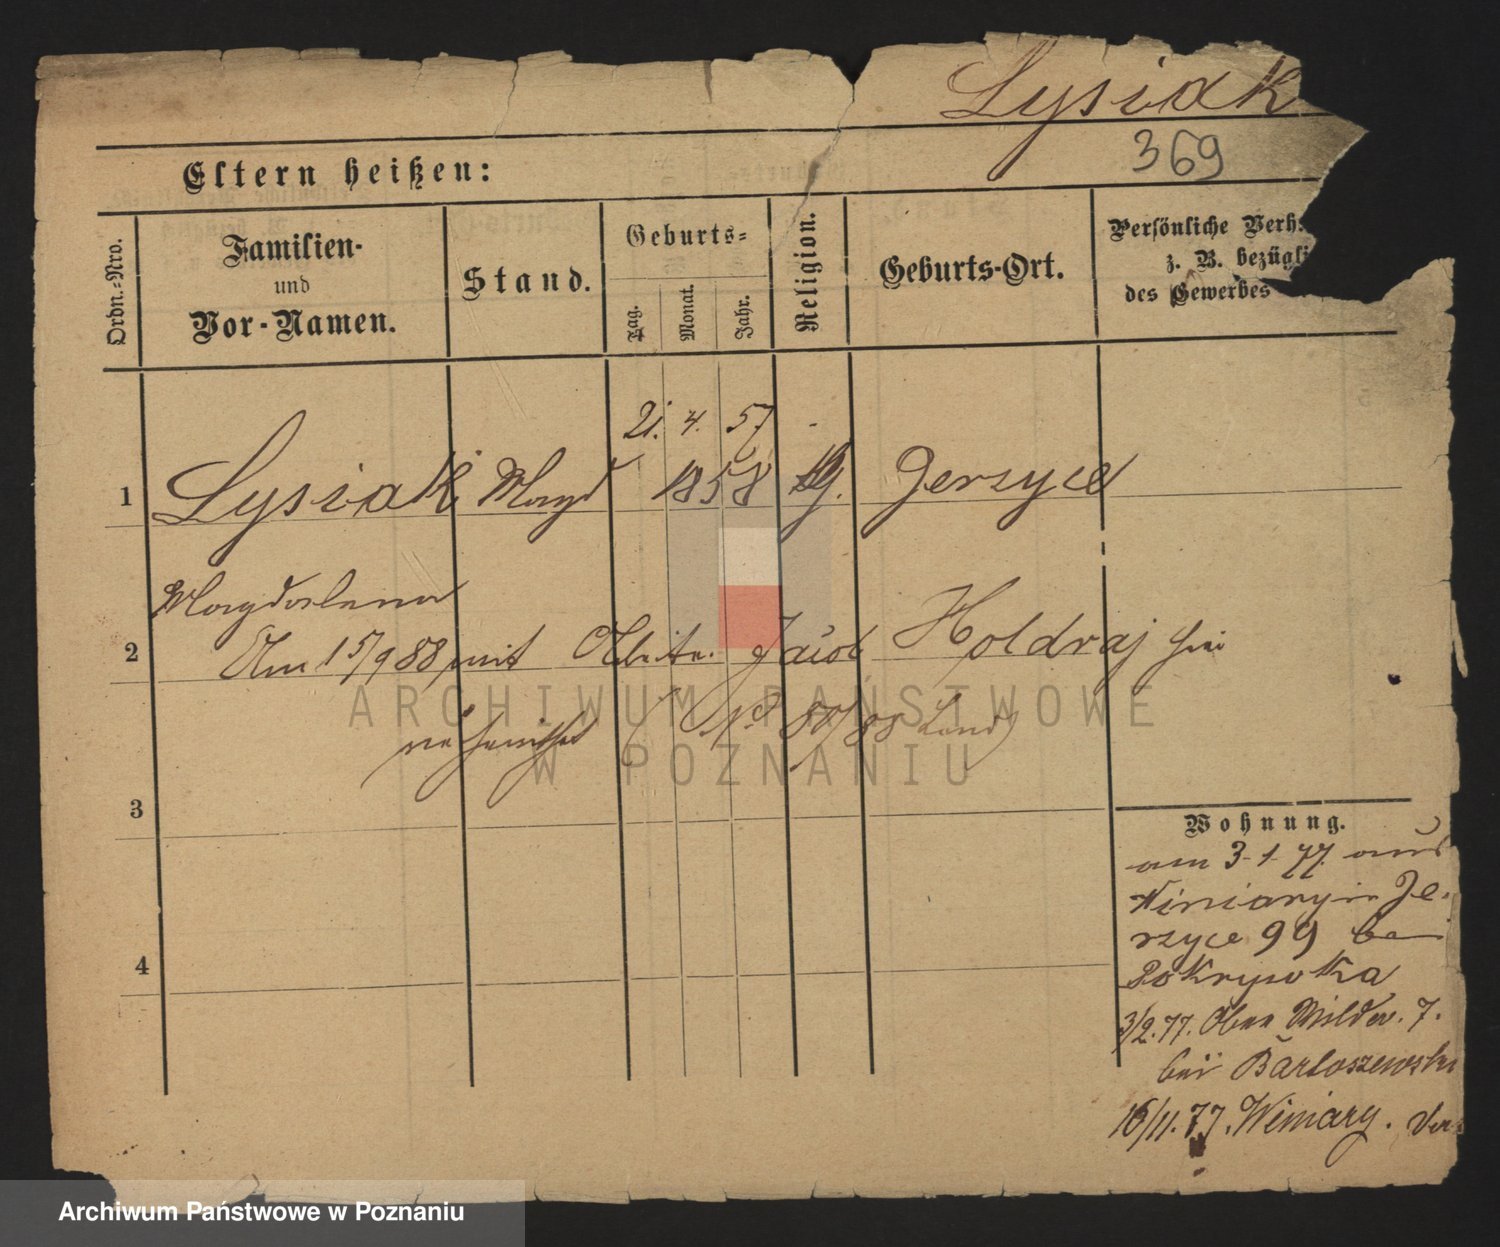 Lysiak
369
Eltern heißen:
Ordn.-Nro.
Familien-
und
Vor-Namen.
Stand.
Geburts-
Tag.
Monat.
Jahr.
Religion.
Geburts-Ort.
Persönliche Verh
z. B. bezügli
des Gewerbes
21. 4. 57
1 Lysiak Magd 1858 Jerzyce
Magdalena
2 Am 15/9 88 mit Jacob Holdraj hier
No 80/88
3
4
Wohnung.
am 3.1.77. aus
Winiary in Je-
rzyce 99 bei
Pokrywka
3/2.77. Ober Wilda. 7.
bei Bartoszewski
16/11.77. Winiary.
ARCHIWUM PAŃSTWOWE
W POZNANIU
Archiwum Państwowe w Poznaniu